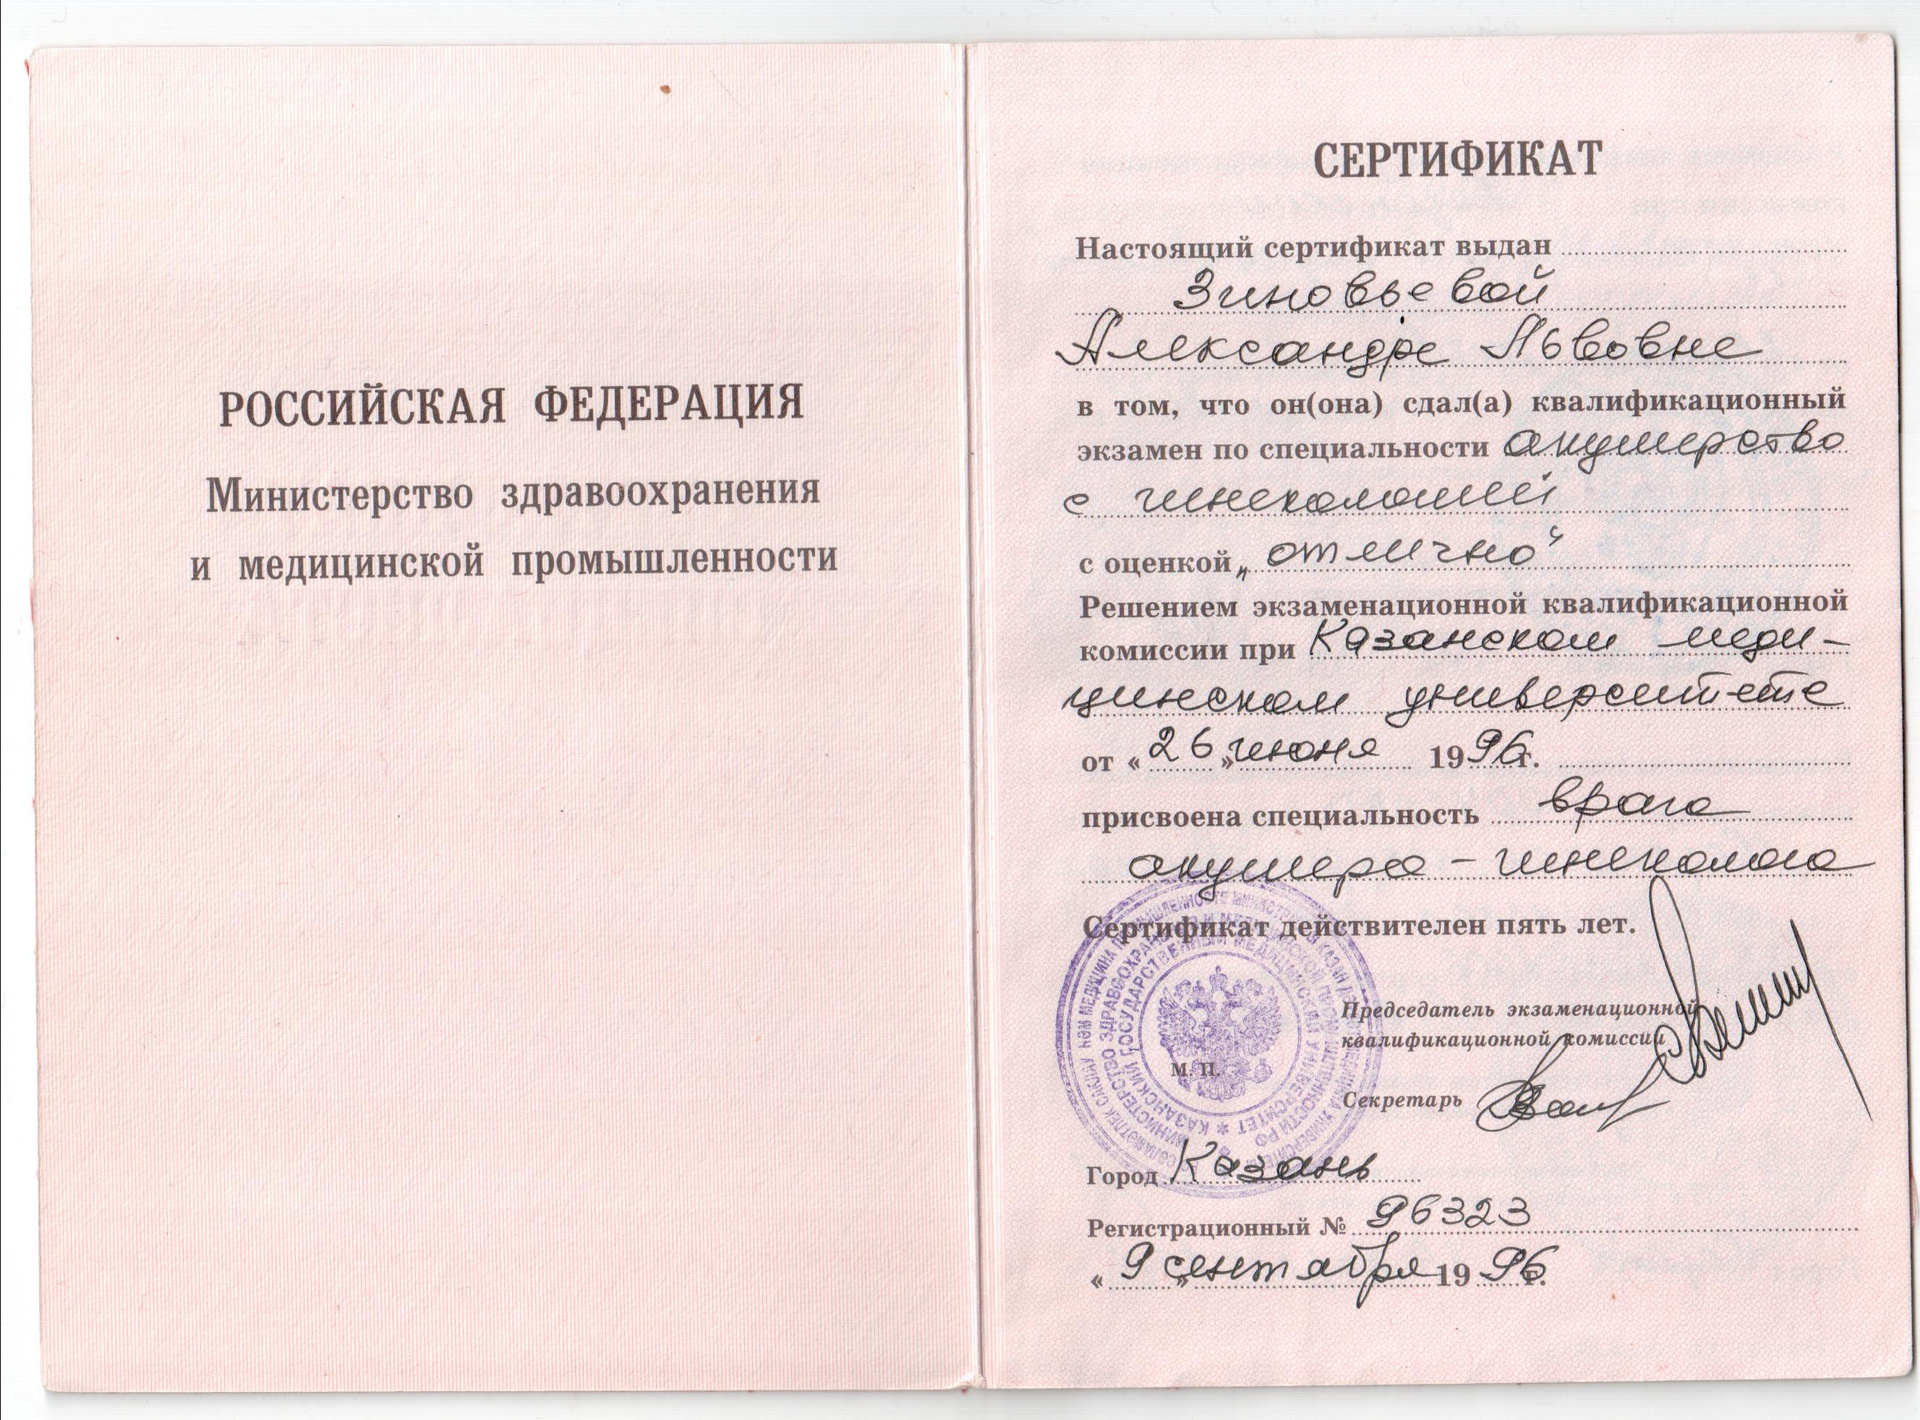 РОССИЙСКАЯ ФЕДЕРАЦИЯ
Министерство здравоохранения
и медицинской промышленности
СЕРТИФИКАТ
Настоящий сертификат выдан
Зиновьевой
Александре Львовне
в том, что он(она) сдал(а) квалификационный
экзамен по специальности акушерство
с гинекологией
с оценкой „отлично“
Решением экзаменационной квалификационной
комиссии при Казанском меди-
цинском университете
от «26» июня 1996г.
присвоена специальность врача
акушера-гинеколога
Сертификат действителен пять лет.
Председатель экзаменационной
квалификационной комиссии
М. П.
Секретарь
Город Казань
Регистрационный № 96323
«9» сентября 1996г.
МИНИСТЕРСТВО ЗДРАВООХРАНЕНИЯ И МЕДИЦИНСКОЙ ПРОМЫШЛЕННОСТИ РФ
КАЗАНСКИЙ ГОСУДАРСТВЕННЫЙ МЕДИЦИНСКИЙ УНИВЕРСИТЕТ